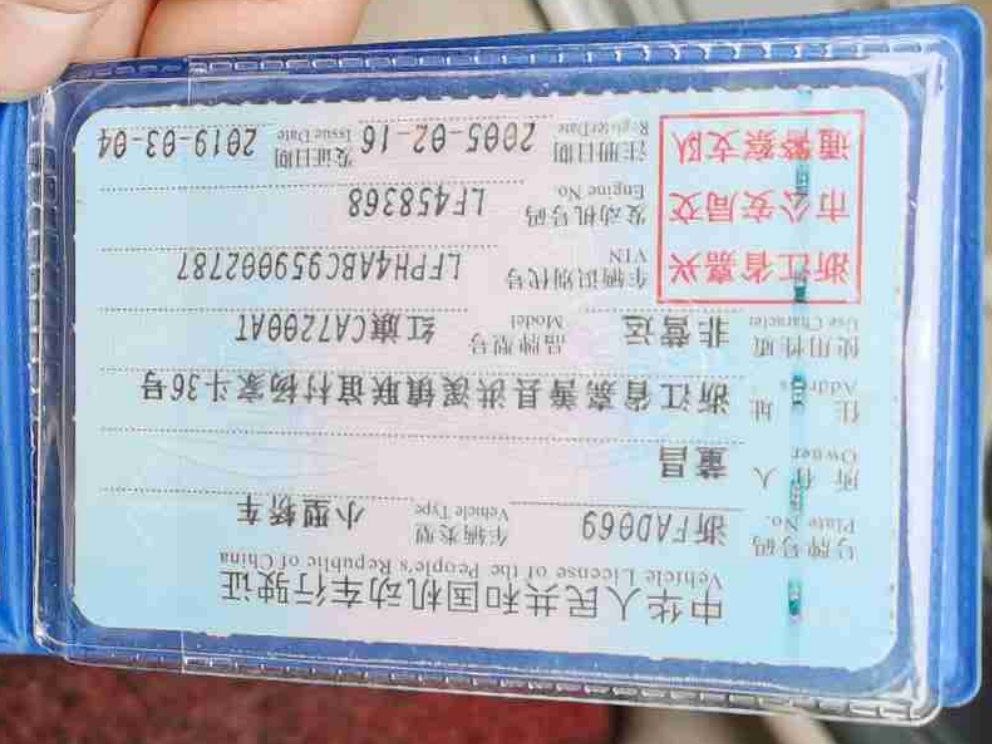 中华人民共和国机动车行驶证
Vehicle License of the People's Republic of China
号牌号码 浙FAD069 车辆类型 小型轿车
Plate No. Vehicle Type
所有人 董昌
Owner
住址 浙江省嘉善县洪溪镇联谊村杨家斗36号
Address
使用性质 非营运 品牌型号 红旗CA7200AT
Use Character Model
浙江省嘉兴
市公安局交
通警察支队
车辆识别代号 LFPH4ABC959002787
VIN
发动机号码 LF458368
Engine No.
注册日期 2005-02-16 发证日期 2019-03-04
Register Date Issue Date